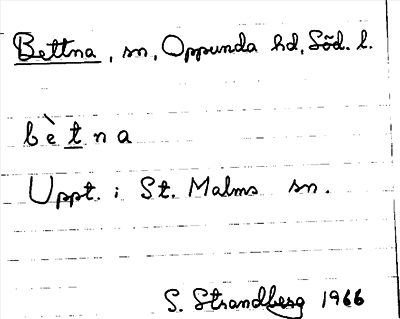 Bettna, sn, Oppunda hd, Söd. l.
bètna
Uppt. i St. Malms sn.
S. Strandberg 1966